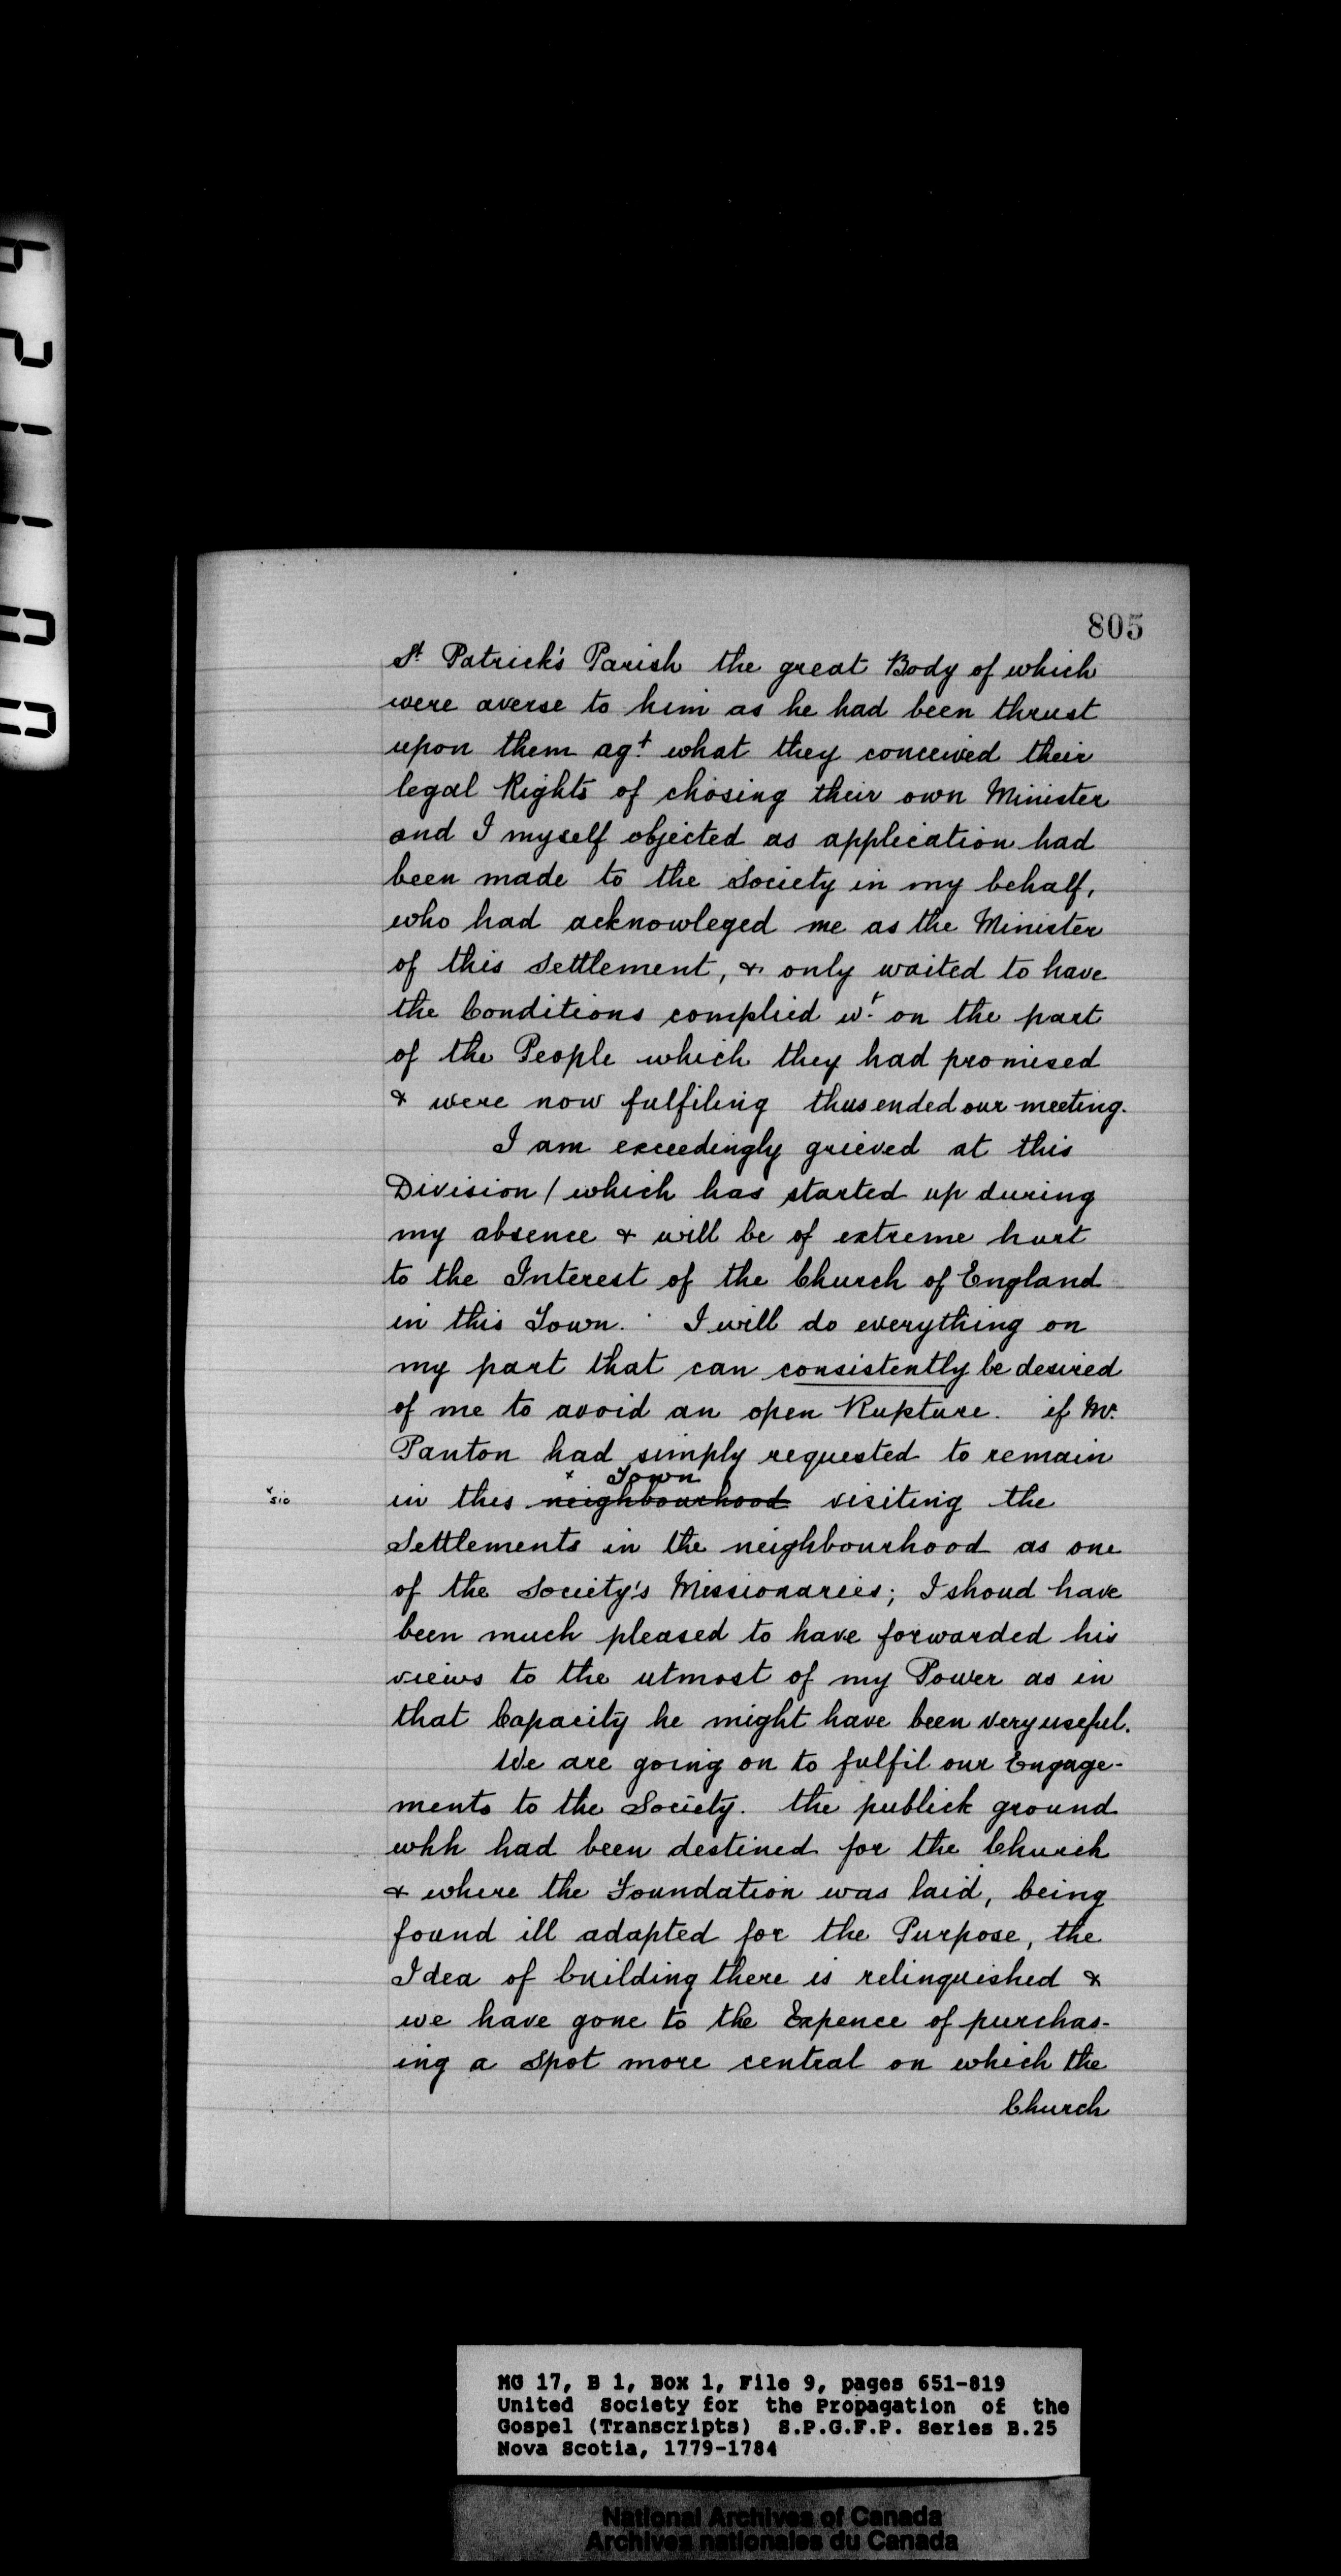 805
St. Patrick's Parish the great Body of which
were averse to him as he had been thrust
upon them agt. what they conceived their
legal Rights of chosing their own Minister
and I myself objected as application had
been made to the Society in my behalf,
who had acknowleged me as the Minister
of this Settlement, & only waited to have
the Conditions complied wt. on the part
of the People which they had promised
& were now fulfiling thus ended our meeting.
I am exceedingly grieved at this
Division / which has started up during
my absence & will be of extreme hurt
to the Interest of the Church of England
in this Town. I will do everything on
my part that can consistently be desired
of me to avoid an open Rupture. if Mr.
Panton had simply requested to remain
x Town
x sic in this neighbourhood visiting the
Settlements in the neighbourhood as one
of the Society's Missionaries; I shoud have
been much pleased to have forwarded his
views to the utmost of my Power as in
that Capacity he might have been very useful.
We are going on to fulfil our Engage-
ments to the Society. the publick ground
whh had been destined for the Church
& where the Foundation was laid, being
found ill adapted for the Purpose, the
Idea of building there is relinquished &
we have gone to the Expence of purchas-
ing a Spot more central on which the
Church
MG 17, B 1, Box 1, File 9, pages 651-819
United Society for the Propagation of the
Gospel (Transcripts) S.P.G.F.P. Series B.25
Nova Scotia, 1779-1784
National Archives of Canada
Archives nationales du Canada